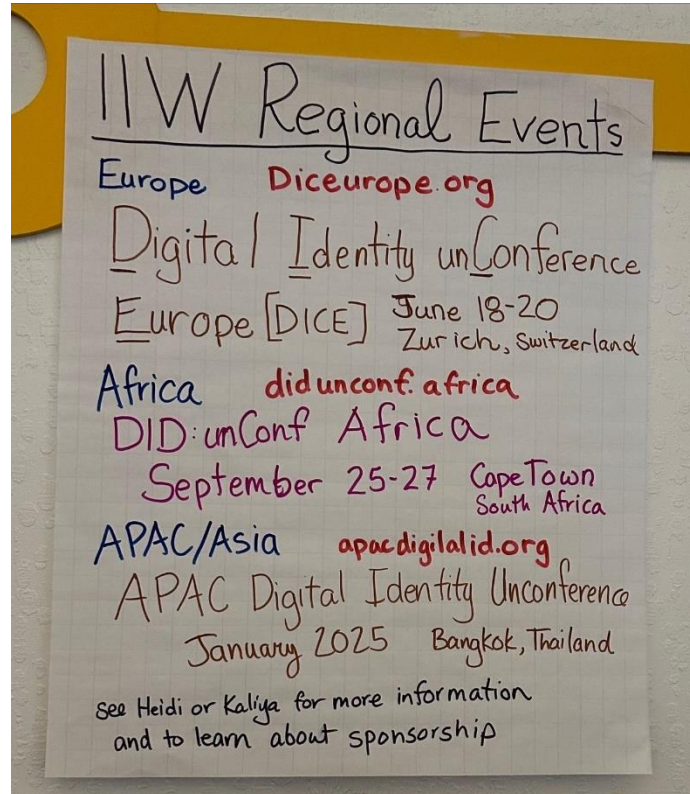 IIW Regional Events
Europe Diceurope.org
Digital Identity unConference
Europe [DICE] June 18-20
Zurich, Switzerland
Africa didunconf.africa
DID:unConf Africa
September 25-27 Cape Town
South Africa
APAC/Asia apacdigilalid.org
APAC Digital Identity Unconference
January 2025 Bangkok, Thailand
see Heidi or Kaliya for more information
and to learn about sponsorship